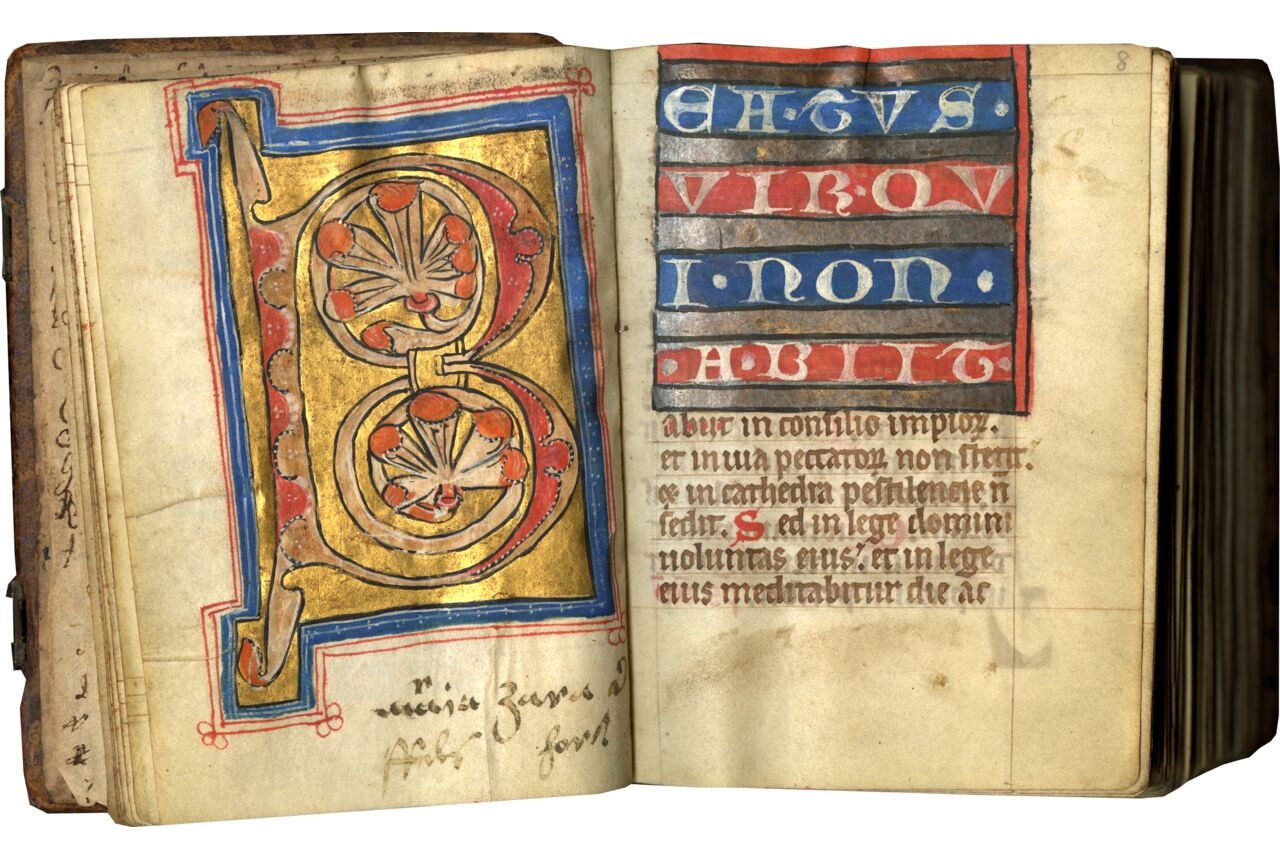 B
maria zara
8
EA·TVS·
VIR·QV
I·NON·
·A·BIIT·
abiit in consilio impioꝝ.
et in uia peccatoꝝ non stetit.
⁊ in cathedra pestilencie n̄
sedit. S ed in lege domini
uoluntas eius. et in lege
eius meditabitur die ac